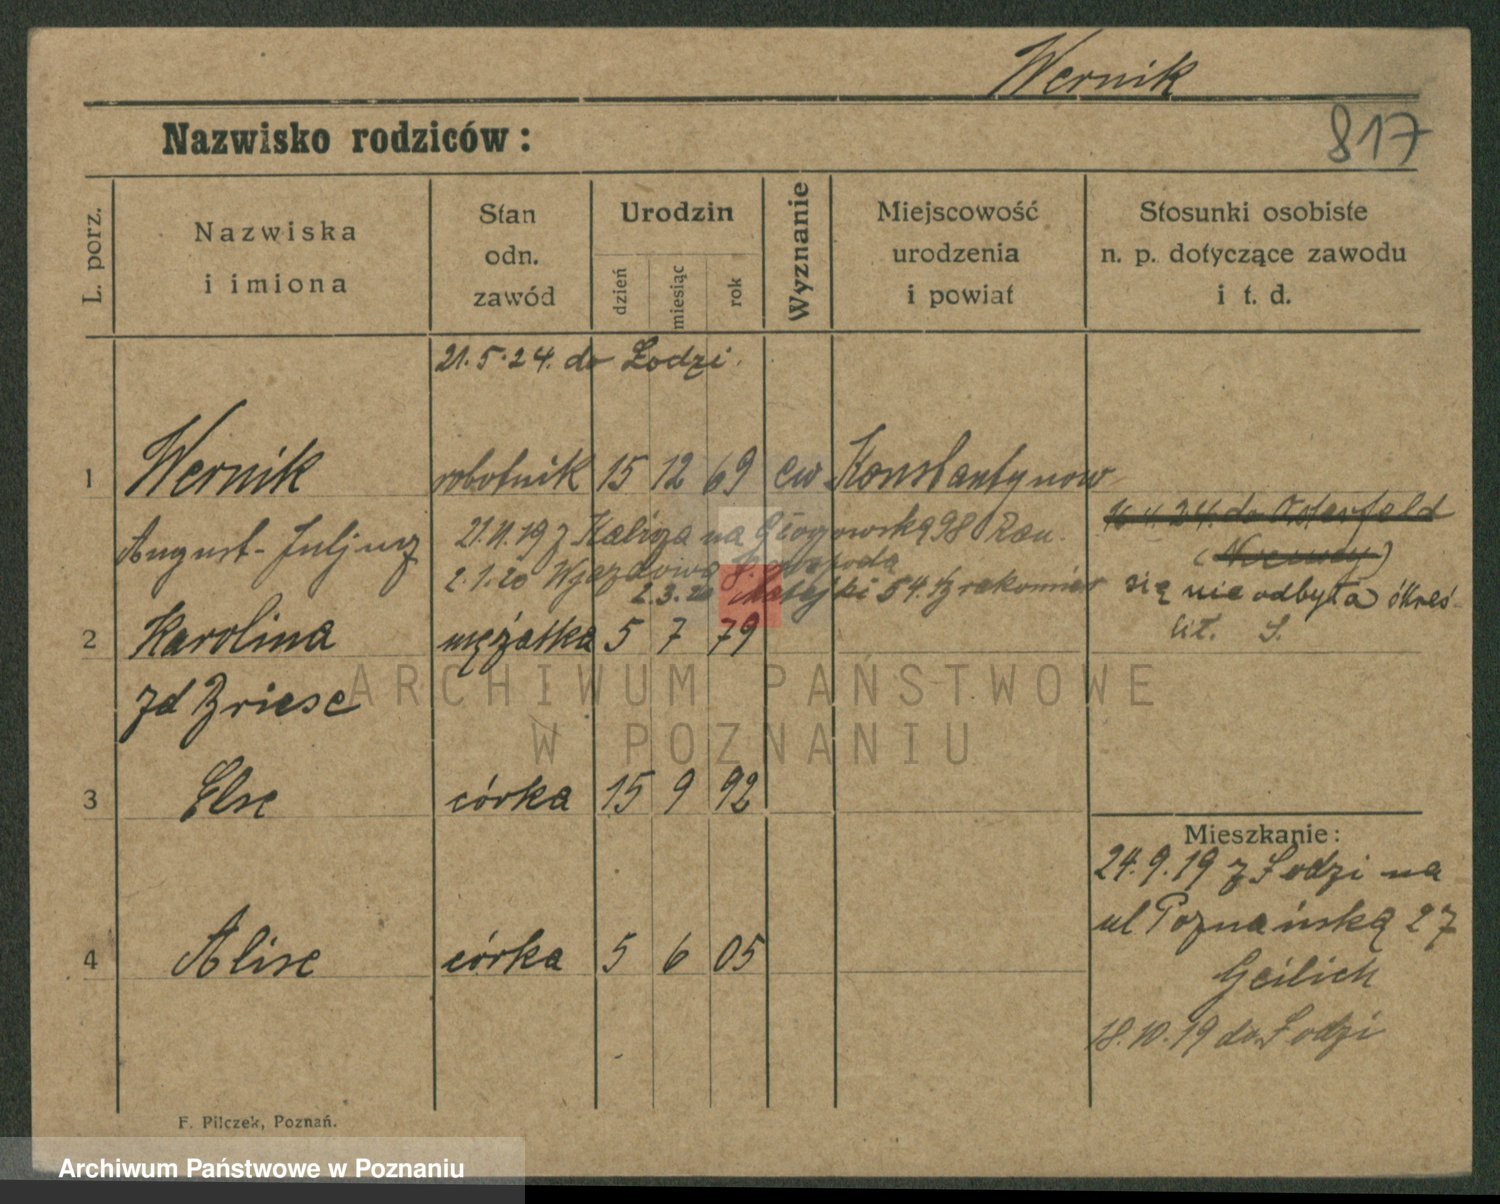 Wernik
817
Nazwisko rodziców:
L. porz.
Nazwiska
i imiona
Stan
odn.
zawód
Urodzin
dzień
miesiąc
rok
Wyznanie
Miejscowość
urodzenia
i powiat
Stosunki osobiste
n. p. dotyczące zawodu
i t. d.
21.5.24. do Łodzi.
1 Wernik robotnik 15 12 69 ew Konstantynow
August-Juljusz
21.11.19 z Kalisza na Głogowską 98
2.1.20
2.3.20 Matejki 54.
24. do Osterfeld
(Niemcy)
się nie odbyła
lit. S.
2 Karolina mężatka 5 7 79
zd Briese
3 Else córka 15 9 92
4 Alise córka 5 6 05
Mieszkanie:
24.9.19 z Łodzi na
ul Poznańską 27
Geilich
18.10.19 do Łodzi
F. Pilczek, Poznań.
ARCHIWUM PAŃSTWOWE
W POZNANIU
Archiwum Państwowe w Poznaniu